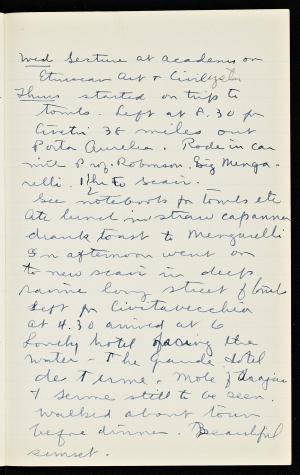 Wed Lecture at Academy on
Etruscan Art & Civilization
Thurs started on trip to
tombs. Left at 8.30 for
38 miles out
Porta Aurelia. Rode in car
with Prof. Robinson, Big Menga-
relli. 1 1/2 hr to
See notebooks for tombs etc
Ate lunch in straw capanna
drank toast to Mengarelli
In afternoon went on
to new scavi in deep
ravine long street of
Left for Civitavecchia
at 4.30 arrived at 6
Lovely hotel facing the
water - The Grande Hotel
des Terme. Mole of Trajan
& Terme still to be seen.
Walked about town
before dinner. Beautiful
sunset.